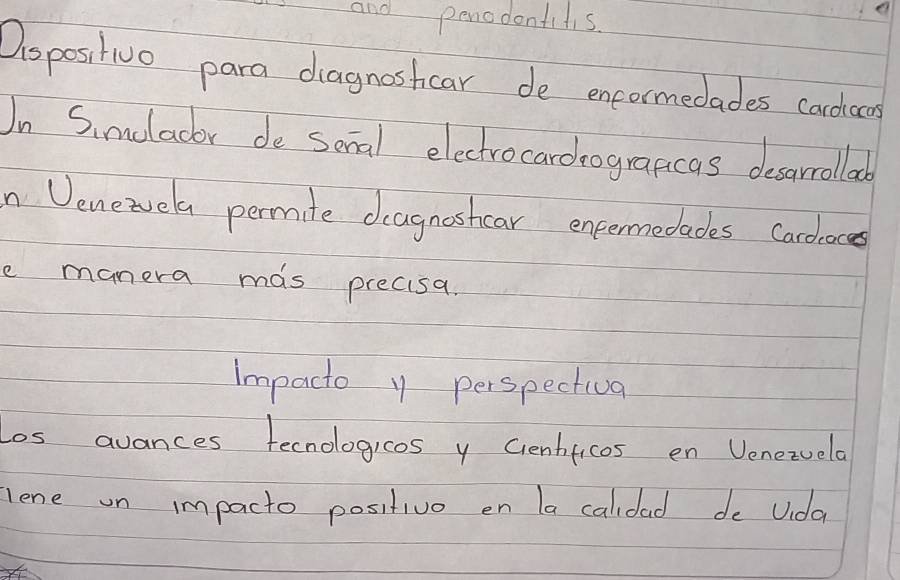 and penodontitis.
Dispositivo para diagnosticar de enformedades cardiacas
Un Simulador de señal electrocardiograficas desarrollado
n Venezuela permite diagnosticar enfermedades Cardiacas
e manera más precisa.
Impacto y perspectiva
Los avances tecnologicos y Cientificos en Venezuela
Tiene un impacto positivo en la calidad de vida